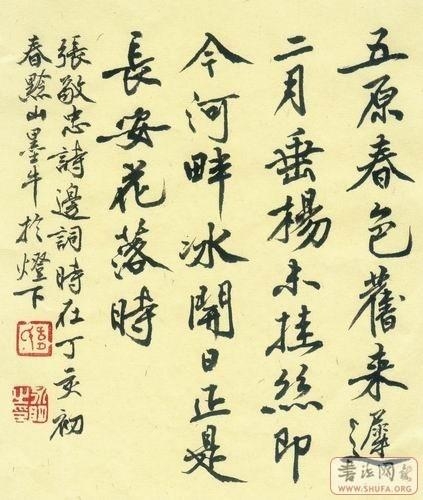 五原春色舊来遲
二月垂楊未挂絲即
今河畔冰開日正是
長安花落時
張敬忠詩邊詞時在丁亥初
春黟山墨牛於燈下
WWW.SHUFA.ORG